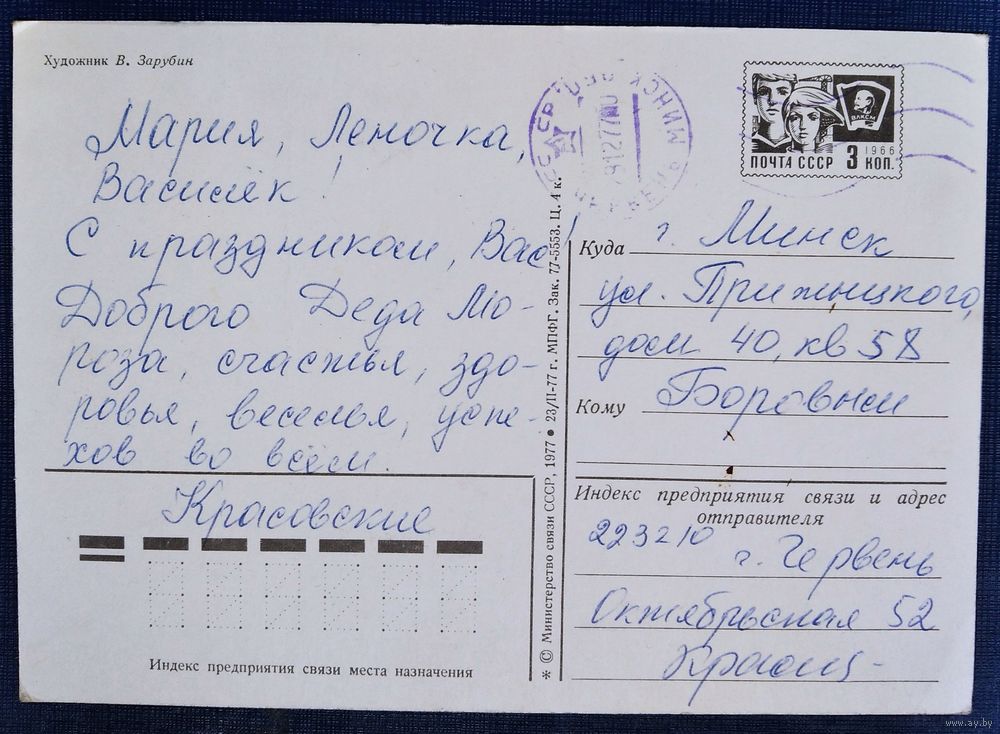 Художник В. Зарубин
Мария, Леночка,
Василёк!
С праздником, Вас!
Доброго Деда Мо-
роза, счастья, здо-
ровья, веселья, успе-
хов во всем.
Красовские
Индекс предприятия связи места назначения
* © Министерство связи СССР, 1977 ● 23/II-77 г. МПФГ. Зак. 77-5553. Ц. 4 к.
ВЛКСМ
1966
ПОЧТА СССР 3 КОП.
ЧЕРВЕНЬ МИНСК. ОБЛ.
Куда г. Минск
ул. Притыцкого,
дом 40, кв 58
Кому Боровым
Индекс предприятия связи и адрес
отправителя
223210
г. Червень
Октябрьская 52
www.ay.by